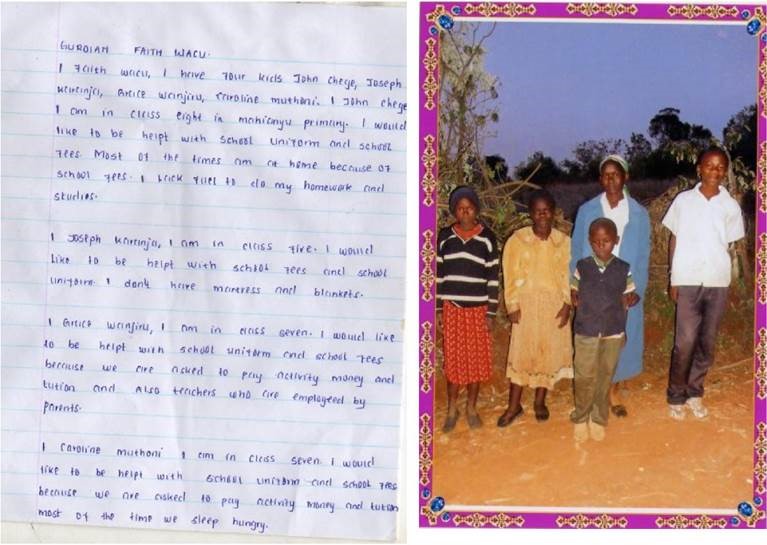 GURDIAN FAITH WACU.
I Faith wacu, I have Four kids John Chege, Joseph
Karanja, Grace Wanjiru, Caroline muthoni. I John chege
I am in class eight in mahianyu primary. I would
like to be helpt with school uniform and school
Fees. Most of the times am at home because of
school Fees. I lack fuel to do my homework and
studies.
I Joseph Karanja, I am in class Five. I would
like to be helpt with school Fees and school
uniform. I don't have martress and blankets.
I Grace Wanjiru, I am in class seven. I would like
to be helpt with school uniform and school Fees
because we are asked to pay activity money and
tution and Also teachers who are employeed by
parents.
I Caroline muthoni I am in class seven. I would
like to be helpt with school uniform and school Fees
because we are asked to pay activity money and tution
most of the time we sleep hungry.